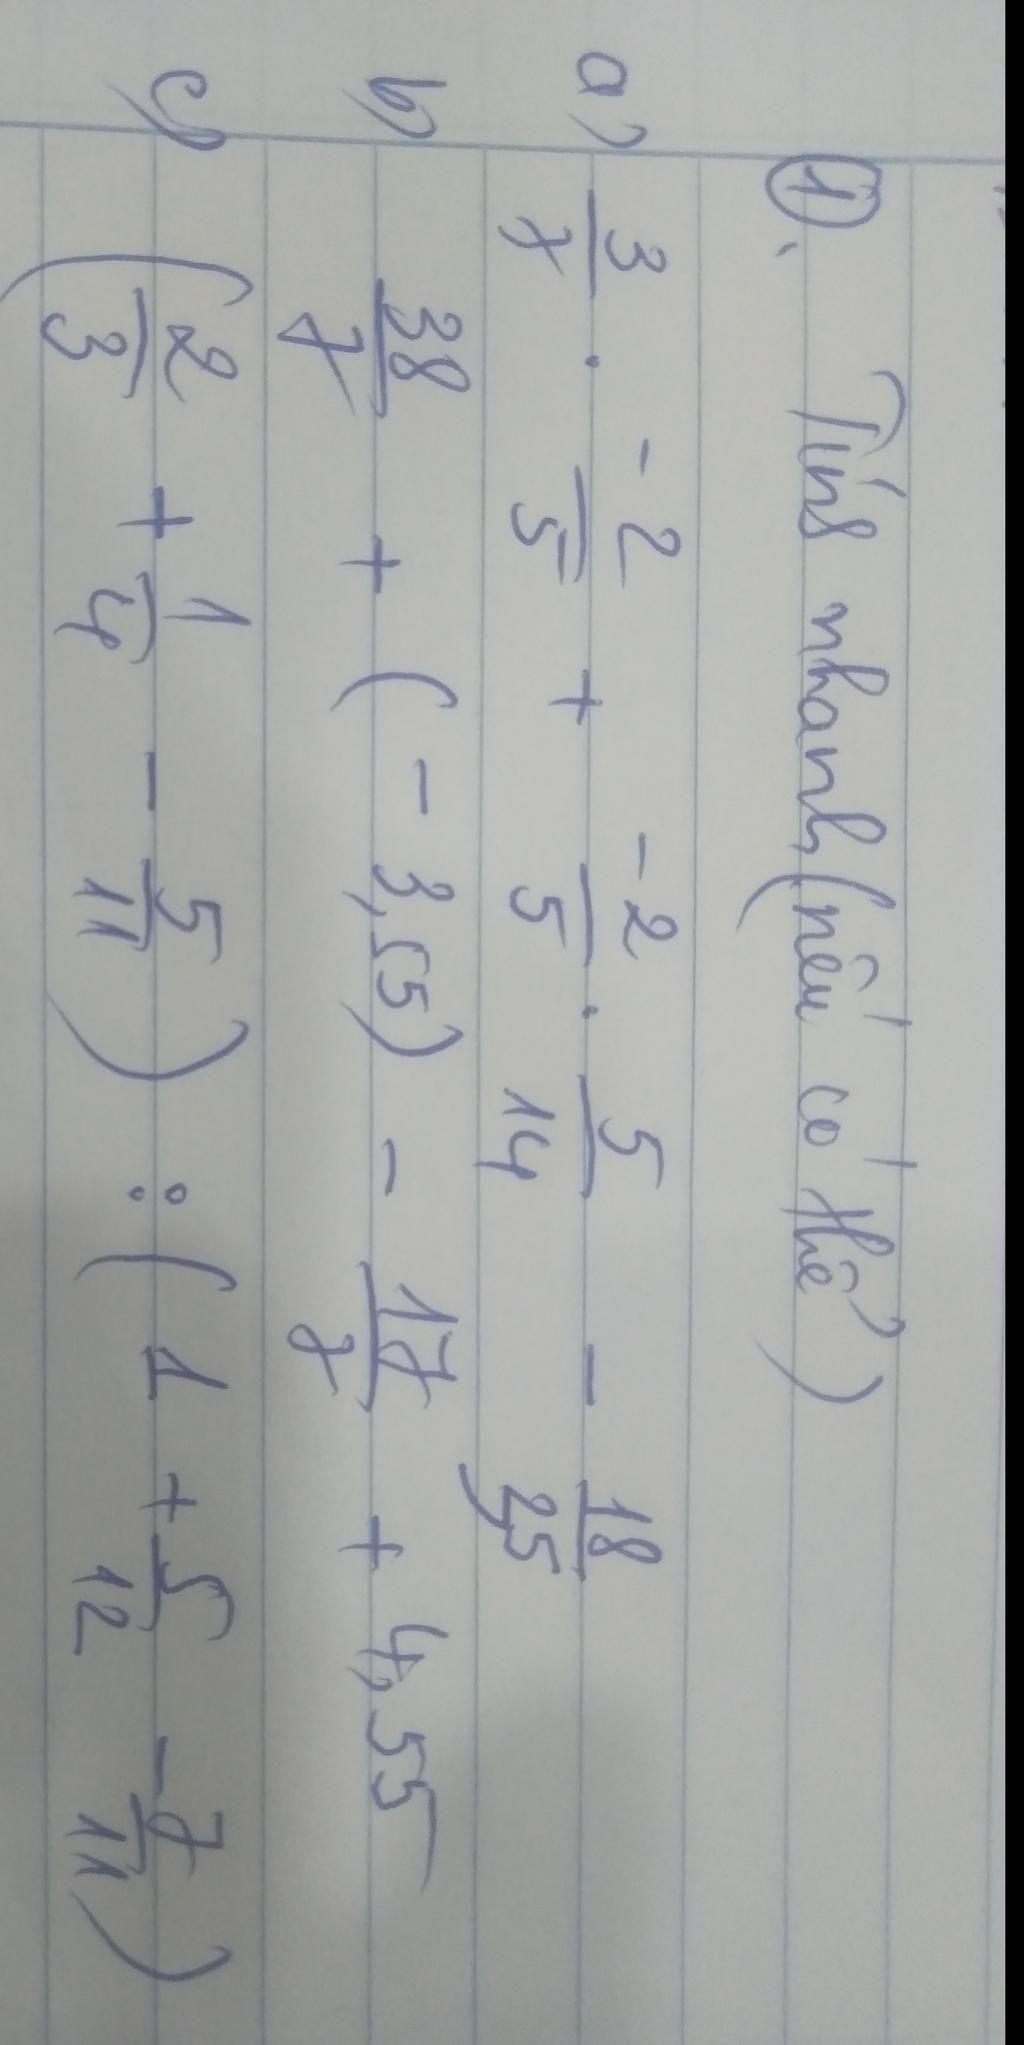 ① . Tính nhanh (nếu có thể)
a) 3/7 . -2/5 + -2/5 . 5/14 - 18/25
b) 38/7 + (-3,55) - 17/7 + 4,55
c) (2/3 + 1/4 - 5/11) : (1 + 5/12 - 7/11)